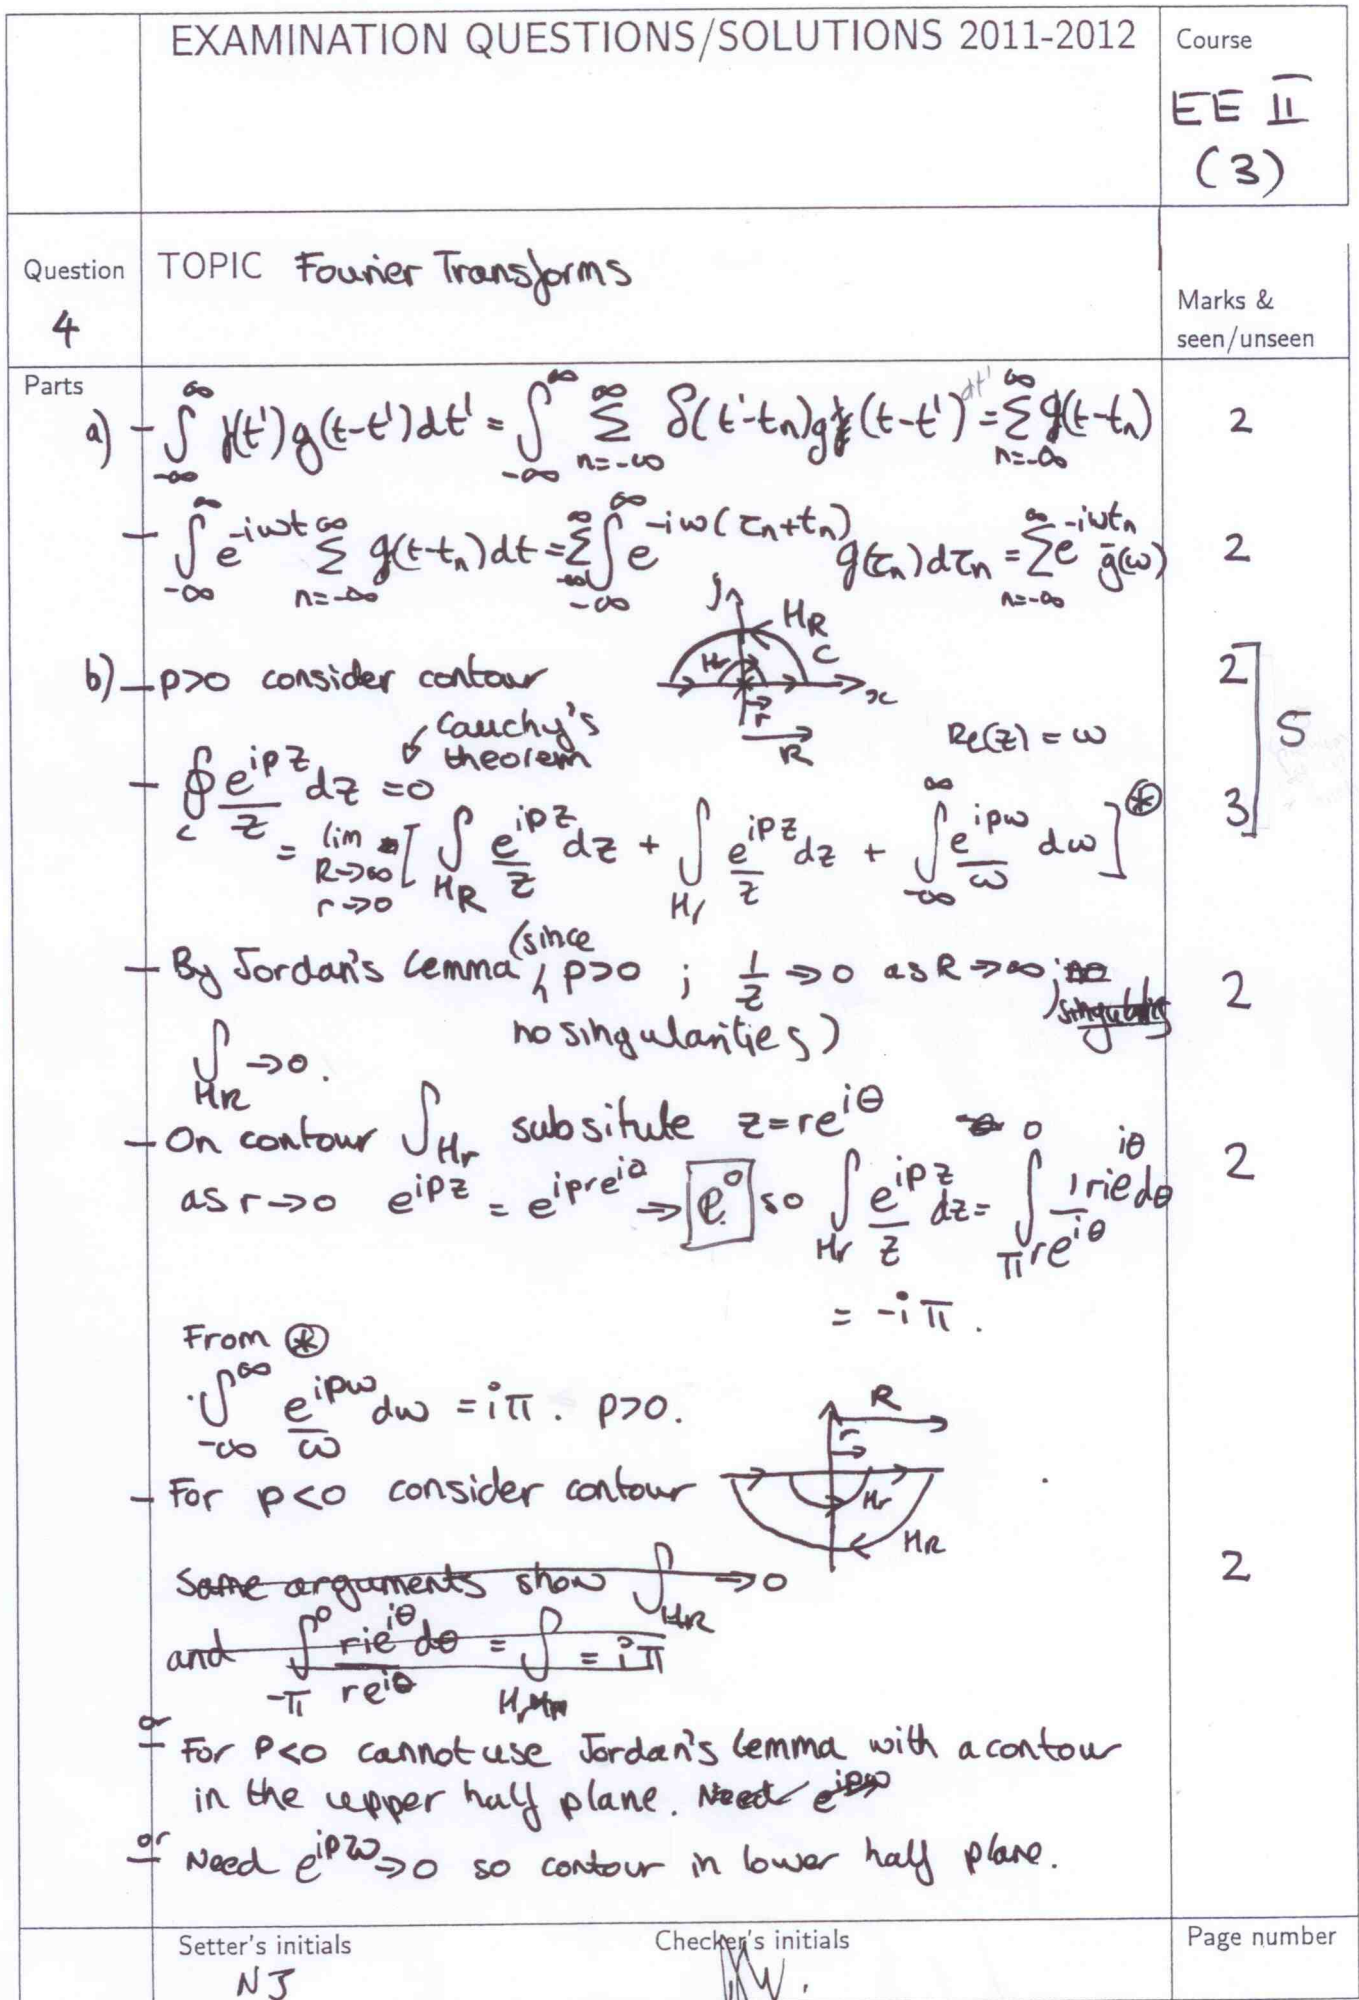 EXAMINATION QUESTIONS/SOLUTIONS 2011-2012
Course
EE II
(3)
Question
4
TOPIC Fourier Transforms
Marks &
seen/unseen
Parts
a) - ∫_{-∞}^{∞} f(t')g(t-t')dt' = ∫_{-∞}^{∞} Σ_{n=-∞}^{∞} δ(t'-t_n)g(t-t') dt' = Σ_{n=-∞}^{∞} g(t-t_n) 2
- ∫_{-∞}^{∞} e^{-iωt} Σ_{n=-∞}^{∞} g(t-t_n)dt = Σ_{-∞}^{∞} ∫_{-∞}^{∞} e^{-iω(τ_n+t_n)} g(τ_n)dτ_n = Σ_{n=-∞}^{∞} e^{-iωt_n} g̅(ω) 2
y H_R
H_r C
b) - p>0 consider contour x 2
r
R
Cauchy's
theorem
Re(z) = ω 5
- ∮_C e^{ipz}/z dz = 0 3
= lim_{R→∞ r→0} [ ∫_{H_R} e^{ipz}/z dz + ∫_{H_r} e^{ipz}/z dz + ∫_{-∞}^{∞} e^{ipω}/ω dω ] ⊛
- By Jordan's Lemma (since p>0 ; 1/z → 0 as R→∞; singularity 2
no singularities)
∫_{H_R} → 0.
- On contour ∫_{H_r} subsitute z=re^{iθ}
as r→0 e^{ipz} = e^{ipre^{iθ}} → e^0 so ∫_{H_r} e^{ipz}/z dz = ∫_π^0 1rie^{iθ}dθ/re^{iθ} 2
= -iπ.
From ⊛
∫_{-∞}^{∞} e^{ipω}/ω dω = iπ. p>0.
R
r
- For p<0 consider contour H_r
H_R
Same arguments show ∫_{H_R} → 0 2
and ∫_{-π}^0 rie^{iθ}dθ/re^{iθ} = ∫_{H_r} = iπ
or
- For p<0 cannot use Jordan's lemma with a contour
in the upper half plane. Need e^{ipω}
or
- Need e^{ipzω} → 0 so contour in lower half plane.
Setter's initials
NJ
Checker's initials
Page number